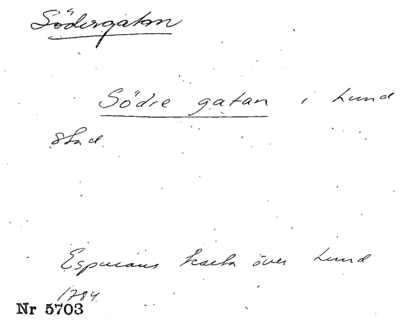 Södergatan
Södre gatan i Lund
stad.
Espmans karta över Lund
1784.
Nr 5703